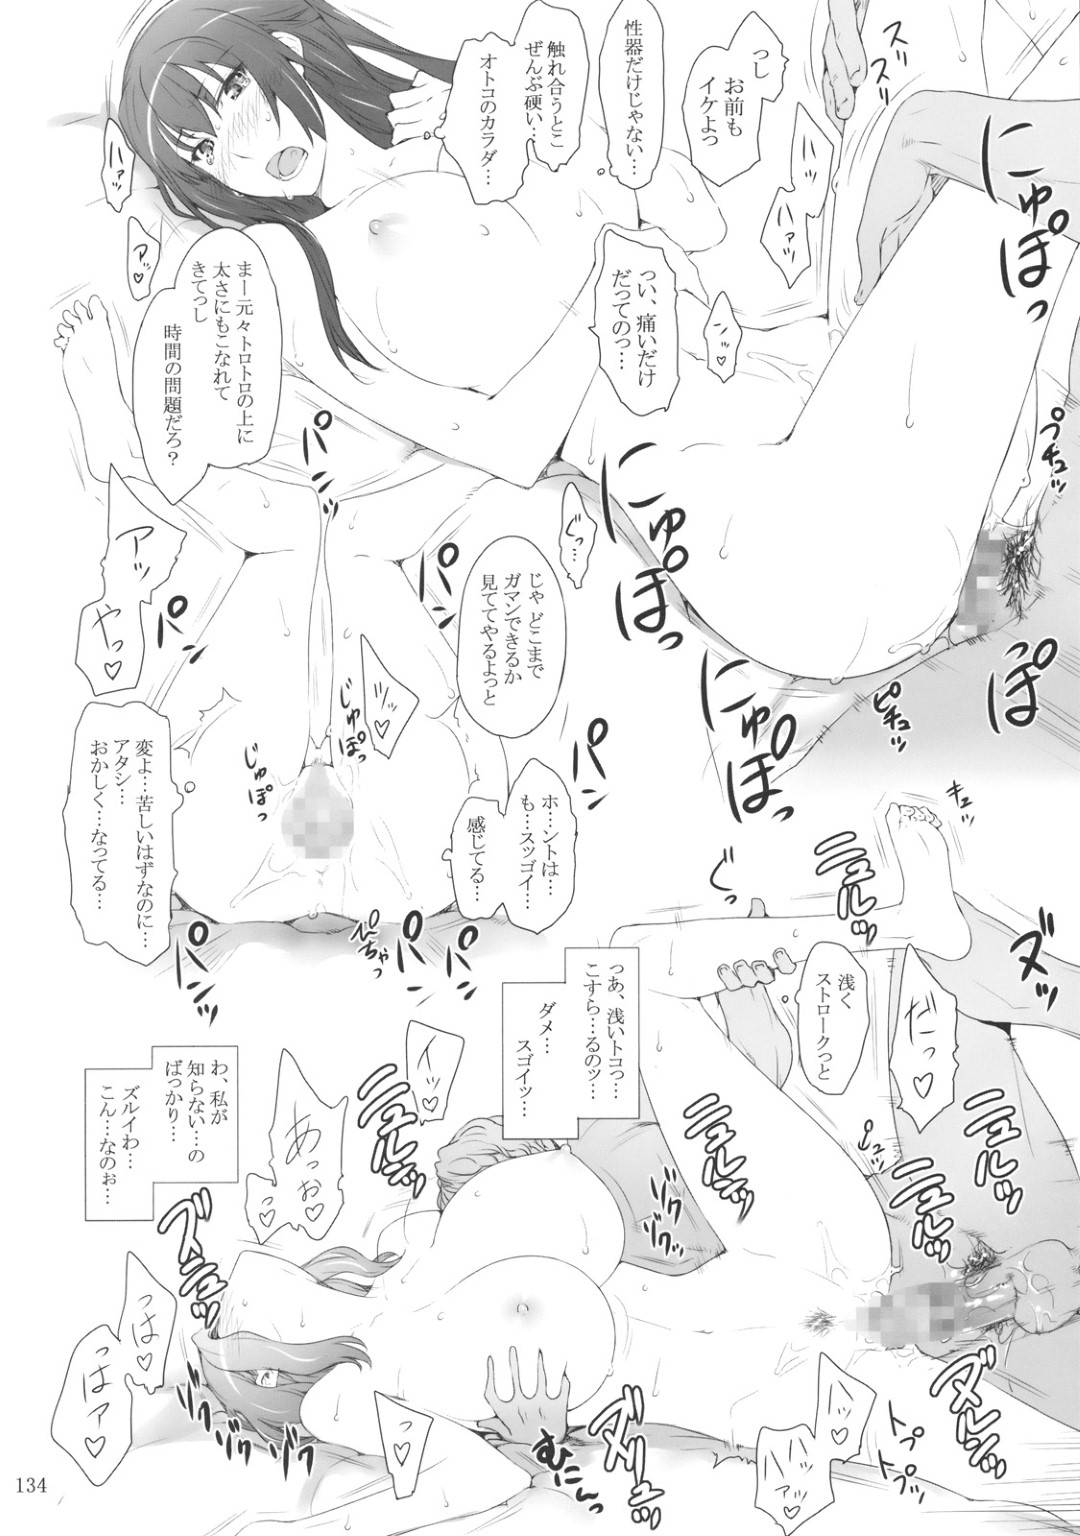 っし
お前も
イケよっ
性器だけじゃない…
触れ合うとこ
ぜんぶ硬い…
オトコのカラダ…
ズリ
ズズッ
にゅぽっ
ハァッ
ハァッ
アッ♡
まー元々トロトロの上に
太さにもこなれて
きてっし
時間の問題だろ？
っい、痛いだけ
だってのっ…
ンッ♡
プチュッ
にゅぽっ
パンッ
ぐっ…
じゃ どこまで
ガマンできるか
見ててやるよっと
パンッ
パンッ
アッ
やっ♡
ッ♡
じゅぽっ
じゅぽっ
にゅぽっ
っぽ
ピチュッ
パンッ
変よ…苦しいはずなのに…
アタシ…
おかしく…なってる…
ホ…ントは…
も…スッゴイ…
感じてる…
パンッ
パンッ
パンッ
ぴちゃっ
キュッ
ぐっ
ニュルッ
ズッ
浅く
ストロークっと
だっ♡
っあ、浅いトコっ…
こすら…るのッ…
ダメ…
スゴイッ…
イッ♡
わ、私が
知らない…の
ばっかり…
ズルイわ…
こん…なのぉ…
あっぉ♡
っ♡
ニュルッ
ニュルッ
ニュルッ
ニュルッ
ゾク
ゾク
ズニュッ
っは♡
っはァ♡
ゾク
ゾク
ゾク
っ♡
むにんっ
ズリュッ
ハッ♡
ハァッ♡
トプ
トプッ
ズルッ
134